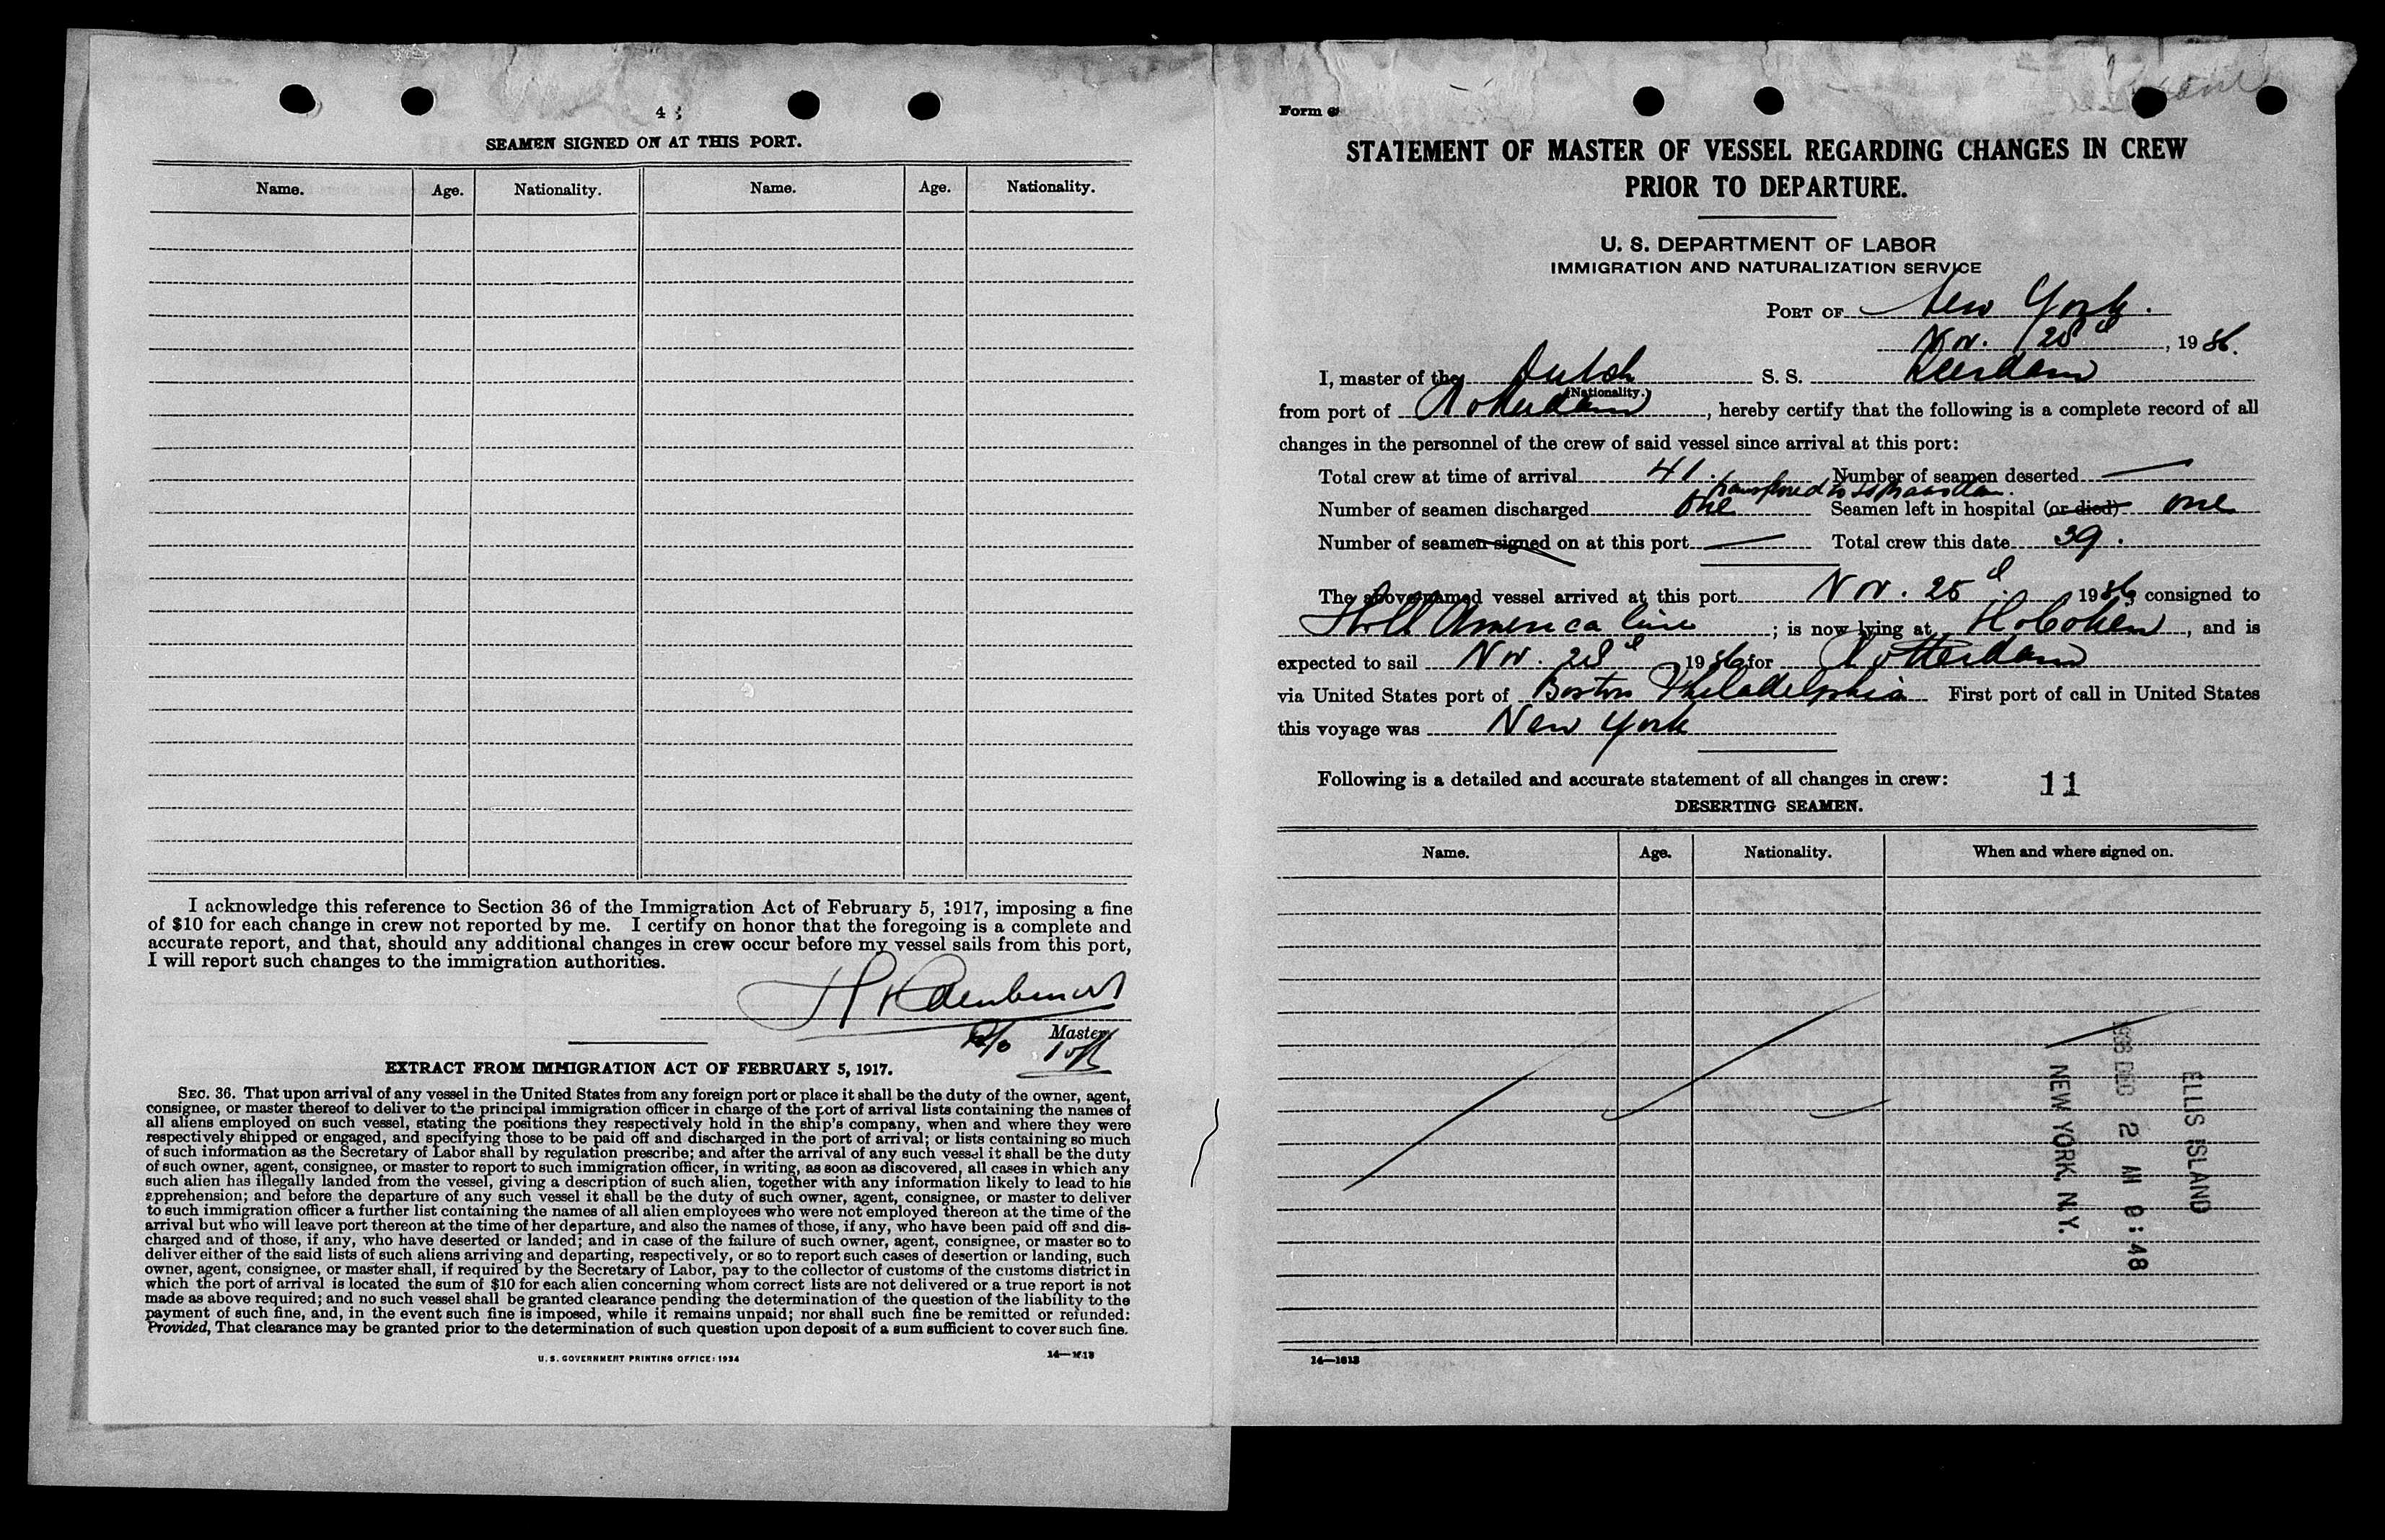 4
SEAMEN SIGNED ON AT THIS PORT.
Name. Age. Nationality. Name. Age. Nationality.
I acknowledge this reference to Section 36 of the Immigration Act of February 5, 1917, imposing a fine
of $10 for each change in crew not reported by me. I certify on honor that the foregoing is a complete and
accurate report, and that, should any additional changes in crew occur before my vessel sails from this port,
I will report such changes to the immigration authorities.
Master
EXTRACT FROM IMMIGRATION ACT OF FEBRUARY 5, 1917.
SEC. 36. That upon arrival of any vessel in the United States from any foreign port or place it shall be the duty of the owner, agent,
consignee, or master thereof to deliver to the principal immigration officer in charge of the port of arrival lists containing the names of
all aliens employed on such vessel, stating the positions they respectively hold in the ship's company, when and where they were
respectively shipped or engaged, and specifying those to be paid off and discharged in the port of arrival; or lists containing so much
of such information as the Secretary of Labor shall by regulation prescribe; and after the arrival of any such vessel it shall be the duty
of such owner, agent, consignee, or master to report to such immigration officer, in writing, as soon as discovered, all cases in which any
such alien has illegally landed from the vessel, giving a description of such alien, together with any information likely to lead to his
apprehension; and before the departure of any such vessel it shall be the duty of such owner, agent, consignee, or master to deliver
to such immigration officer a further list containing the names of all alien employees who were not employed thereon at the time of the
arrival but who will leave port thereon at the time of her departure, and also the names of those, if any, who have been paid off and dis-
charged and of those, if any, who have deserted or landed; and in case of the failure of such owner, agent, consignee, or master so to
deliver either of the said lists of such aliens arriving and departing, respectively, or so to report such cases of desertion or landing, such
owner, agent, consignee, or master shall, if required by the Secretary of Labor, pay to the collector of customs of the customs district in
which the port of arrival is located the sum of $10 for each alien concerning whom correct lists are not delivered or a true report is not
made as above required; and no such vessel shall be granted clearance pending the determination of the question of the liability to the
payment of such fine, and, in the event such fine is imposed, while it remains unpaid; nor shall such fine be remitted or refunded:
Provided, That clearance may be granted prior to the determination of such question upon deposit of a sum sufficient to cover such fine.
U. S. GOVERNMENT PRINTING OFFICE: 1934 14—1613
Form
STATEMENT OF MASTER OF VESSEL REGARDING CHANGES IN CREW
PRIOR TO DEPARTURE.
U. S. DEPARTMENT OF LABOR
IMMIGRATION AND NATURALIZATION SERVICE
PORT OF New York.
Nov. 28d, 1936.
I, master of the Dutch S. S. Leerdam
(Nationality.)
from port of Rotterdam, hereby certify that the following is a complete record of all
changes in the personnel of the crew of said vessel since arrival at this port:
Total crew at time of arrival 41. Number of seamen deserted —
transferred to SS Maasdam.
Number of seamen discharged One Seamen left in hospital (or died) one
Number of seamen signed on at this port — Total crew this date 39.
The above-named vessel arrived at this port Nov. 25d. 1936, consigned to
Holl America line; is now lying at Hoboken, and is
expected to sail Nov. 28d 1936 for Rotterdam
via United States port of Boston Philadelphia First port of call in United States
this voyage was New York
Following is a detailed and accurate statement of all changes in crew: 11
DESERTING SEAMEN.
Name. Age. Nationality. When and where signed on.
ELLIS ISLAND
1936 DEC 2 AM 9:48
NEW YORK, N.Y.
14—1613